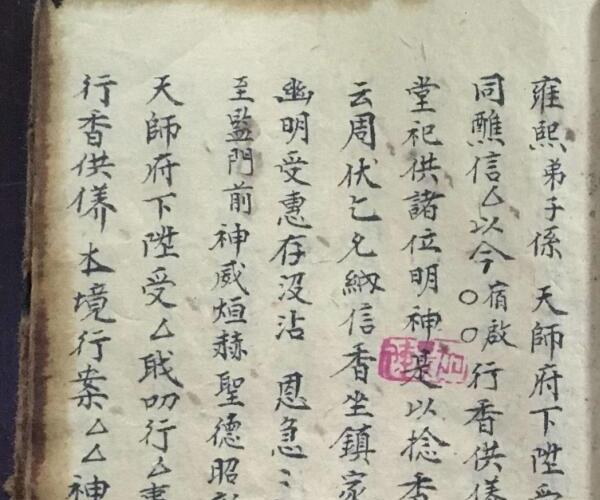 雍熙弟子係 天師府下陞受
同醮信厶以今 宿啟 〇〇 行香供儀
堂祀供諸位明神 是以捻香
云周伏乞允納信香坐鎮家
幽明受惠存没沾 恩急
至監門前神威烜赫聖德昭
天師府下陞受厶職叨行厶事
行香供養 本境行案厶厶神